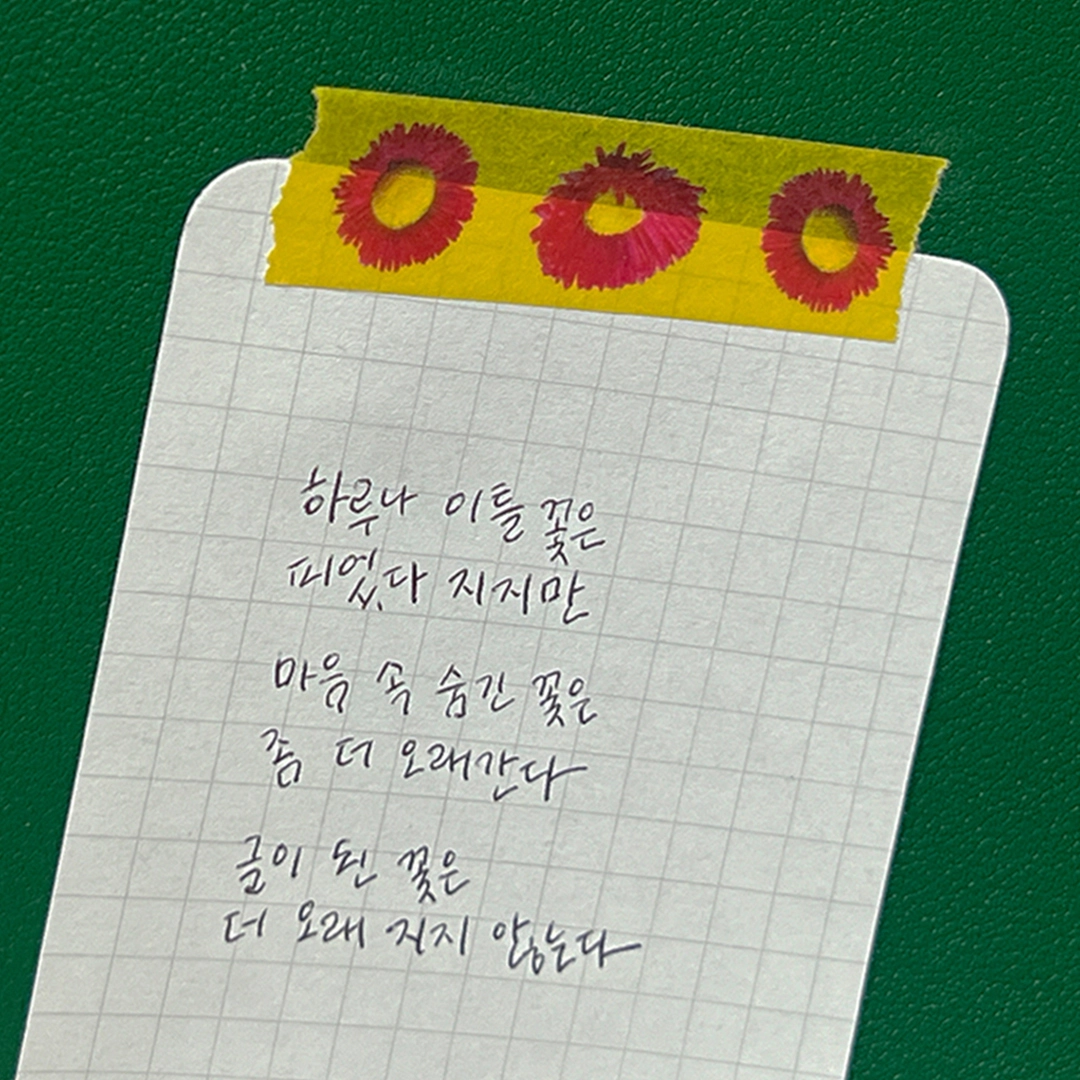 하루나 이틀 꽃은
피었다 지지만
마음 속 숨긴 꽃은
좀 더 오래간다
글이 된 꽃은
더 오래 지지 않는다